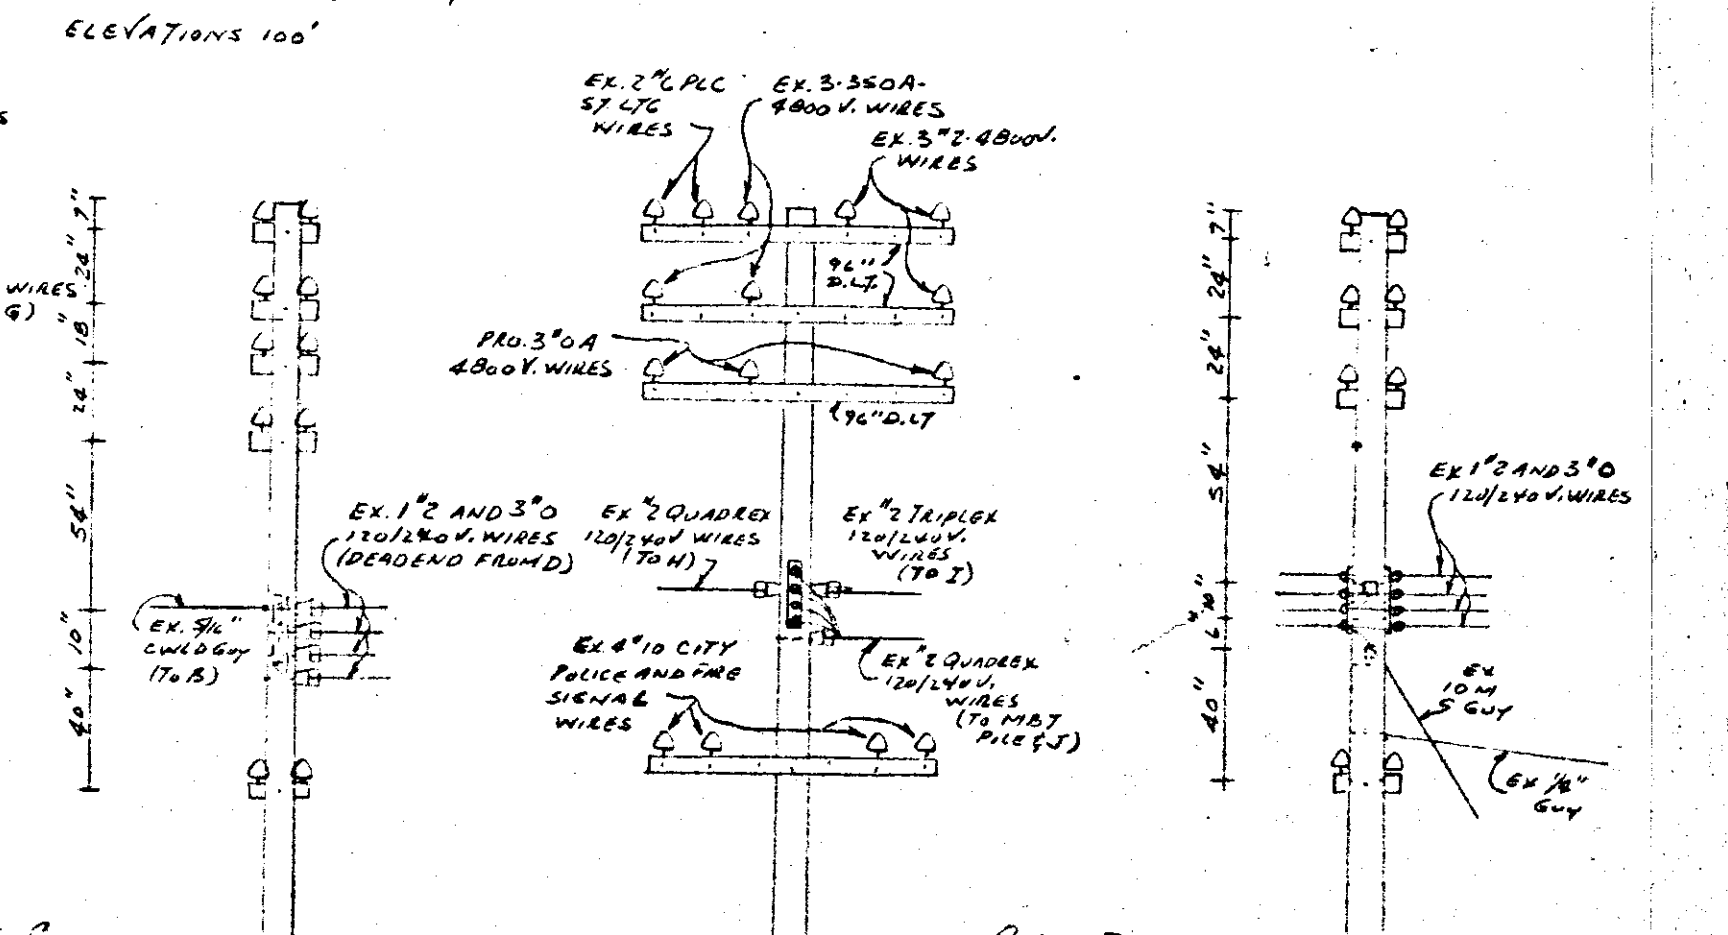 ELEVATIONS 100'
S
WIRES
G)
7"
24"
18"
24"
54"
10"
40"
EX. 5/16"
CWLD GUY
(TO B)
EX. 1 #2 AND 3 #0
120/240 V. WIRES
(DEADEND FROM D)
EX. 2 #6 PLC
ST. LTG
WIRES
EX. 3-350A-
4800 V. WIRES
EX. 3 #2-4800V.
WIRES
96"
D.LT.
PRO. 3 #0 A
4800 V. WIRES
96" D.LT
EX #2 QUADREX
120/240V WIRES
(TO H)
EX #2 TRIPLEX
120/240 V.
WIRES
(TO I)
EX 4 #10 CITY
POLICE AND FIRE
SIGNAL
WIRES
EX #2 QUADREX
120/240 V.
WIRES
(TO MBT
POLE & J)
7"
24"
24"
54"
10"
6"
40"
EX 1 #2 AND 3 #0
120/240 V. WIRES
EX
10 M
S GUY
EX 1/4"
GUY